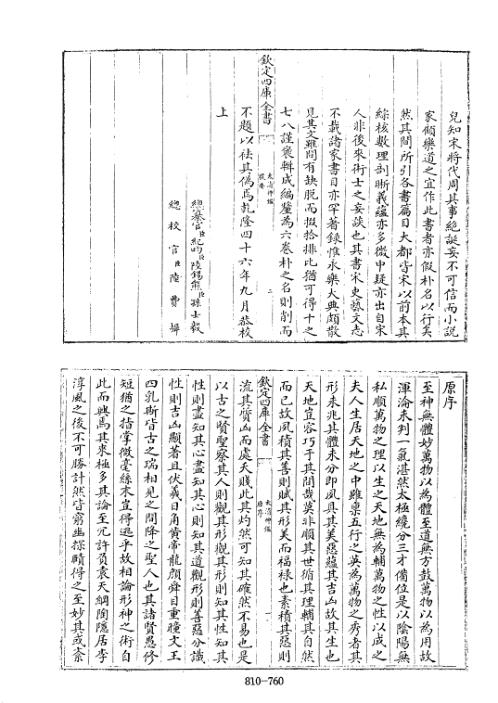 兒知宋將代周其事絶誕妄不可信而小說
家顧樂道之宜作此書者亦假朴名以行矣
然其間所引各書篇目大都皆宋以前本其
綜核數理剖晰義蘊亦多微中疑亦出自宋
人非後來術士之妄談也其書宋史藝文志
不載諸家書目亦罕著録惟永樂大典頗散
見其文雖間有缺脫而掇拾排比猶可得十之
欽定四庫全書
太清神鑑
提要
二
七八謹裒輯成編釐為六卷朴之名則削而
不題以祛其偽焉乾隆四十六年九月恭校
上
總纂官臣紀昀臣陸錫熊臣孫士毅
總校官臣陸費墀
原序
至神無體妙萬物以為體至道無方鼓萬物以為用故
渾淪未判一氣湛然太極纔分三才備位是以陰陽無
私順萬物之理以生之天地無為輔萬物之性以成之
夫人生居天地之中雖稟五行之英為萬物之秀者其
形未兆其體未分即夙具其美惡蘊其吉凶故其生也
天地豈容巧于其間哉莫非順其世循其理輔其自然
而已故夙積其善則賦其形美而福祿也素積其惡則
欽定四庫全書
太清神鑑
原序
一
流其質凶而處夭賤此其灼然可知其確然不易也是
以古之賢聖察其人則觀其形觀其形則知其性知其
性則盡知其心盡知其心則知其道觀形則善惡分識
性則吉凶顯著且伏羲日角黄帝龍顔舜目重瞳文王
四乳斯皆古之瑞相見之間降之聖人也其諸賢愚修
短猶之指掌微毫絲末豈得逃乎故相論形神之術自
此而興焉其來極多其論至冗許負袁天綱陶隱居李
淳風之後不可勝計然皆窮幽探賾得之至妙其或紊
810-760